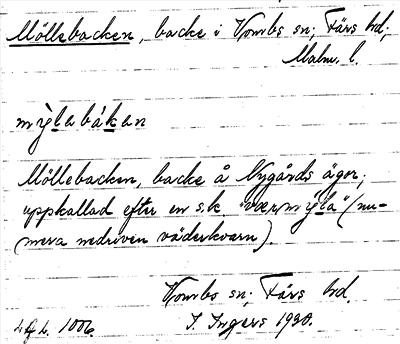 Möllebacken, backe i Vombs sn; Färs hd;
Malm. l.
mỳlabákan
Möllebacken, backe å Nygårds ägor;
uppkallad efter en s.k. "værmỳla" (nu-
mera nedriven väderkvarn).
Vombs sn; Färs hd.
I. Ingers 1930.
1006